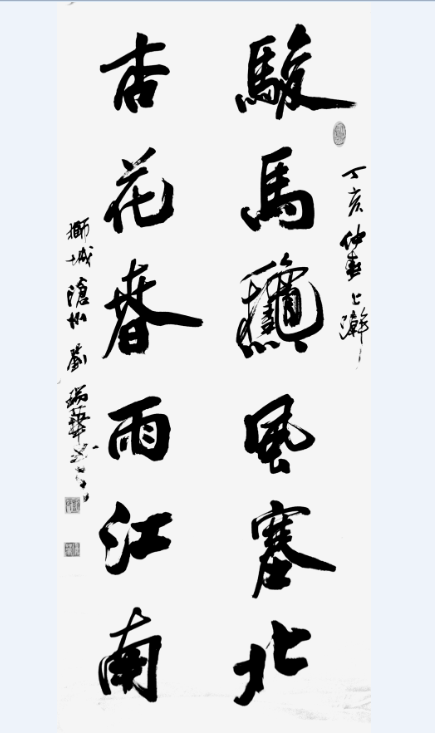 丁亥仲春上澣
駿馬龝風塞北
杏花春雨江南
獅城滄州劉瑞華